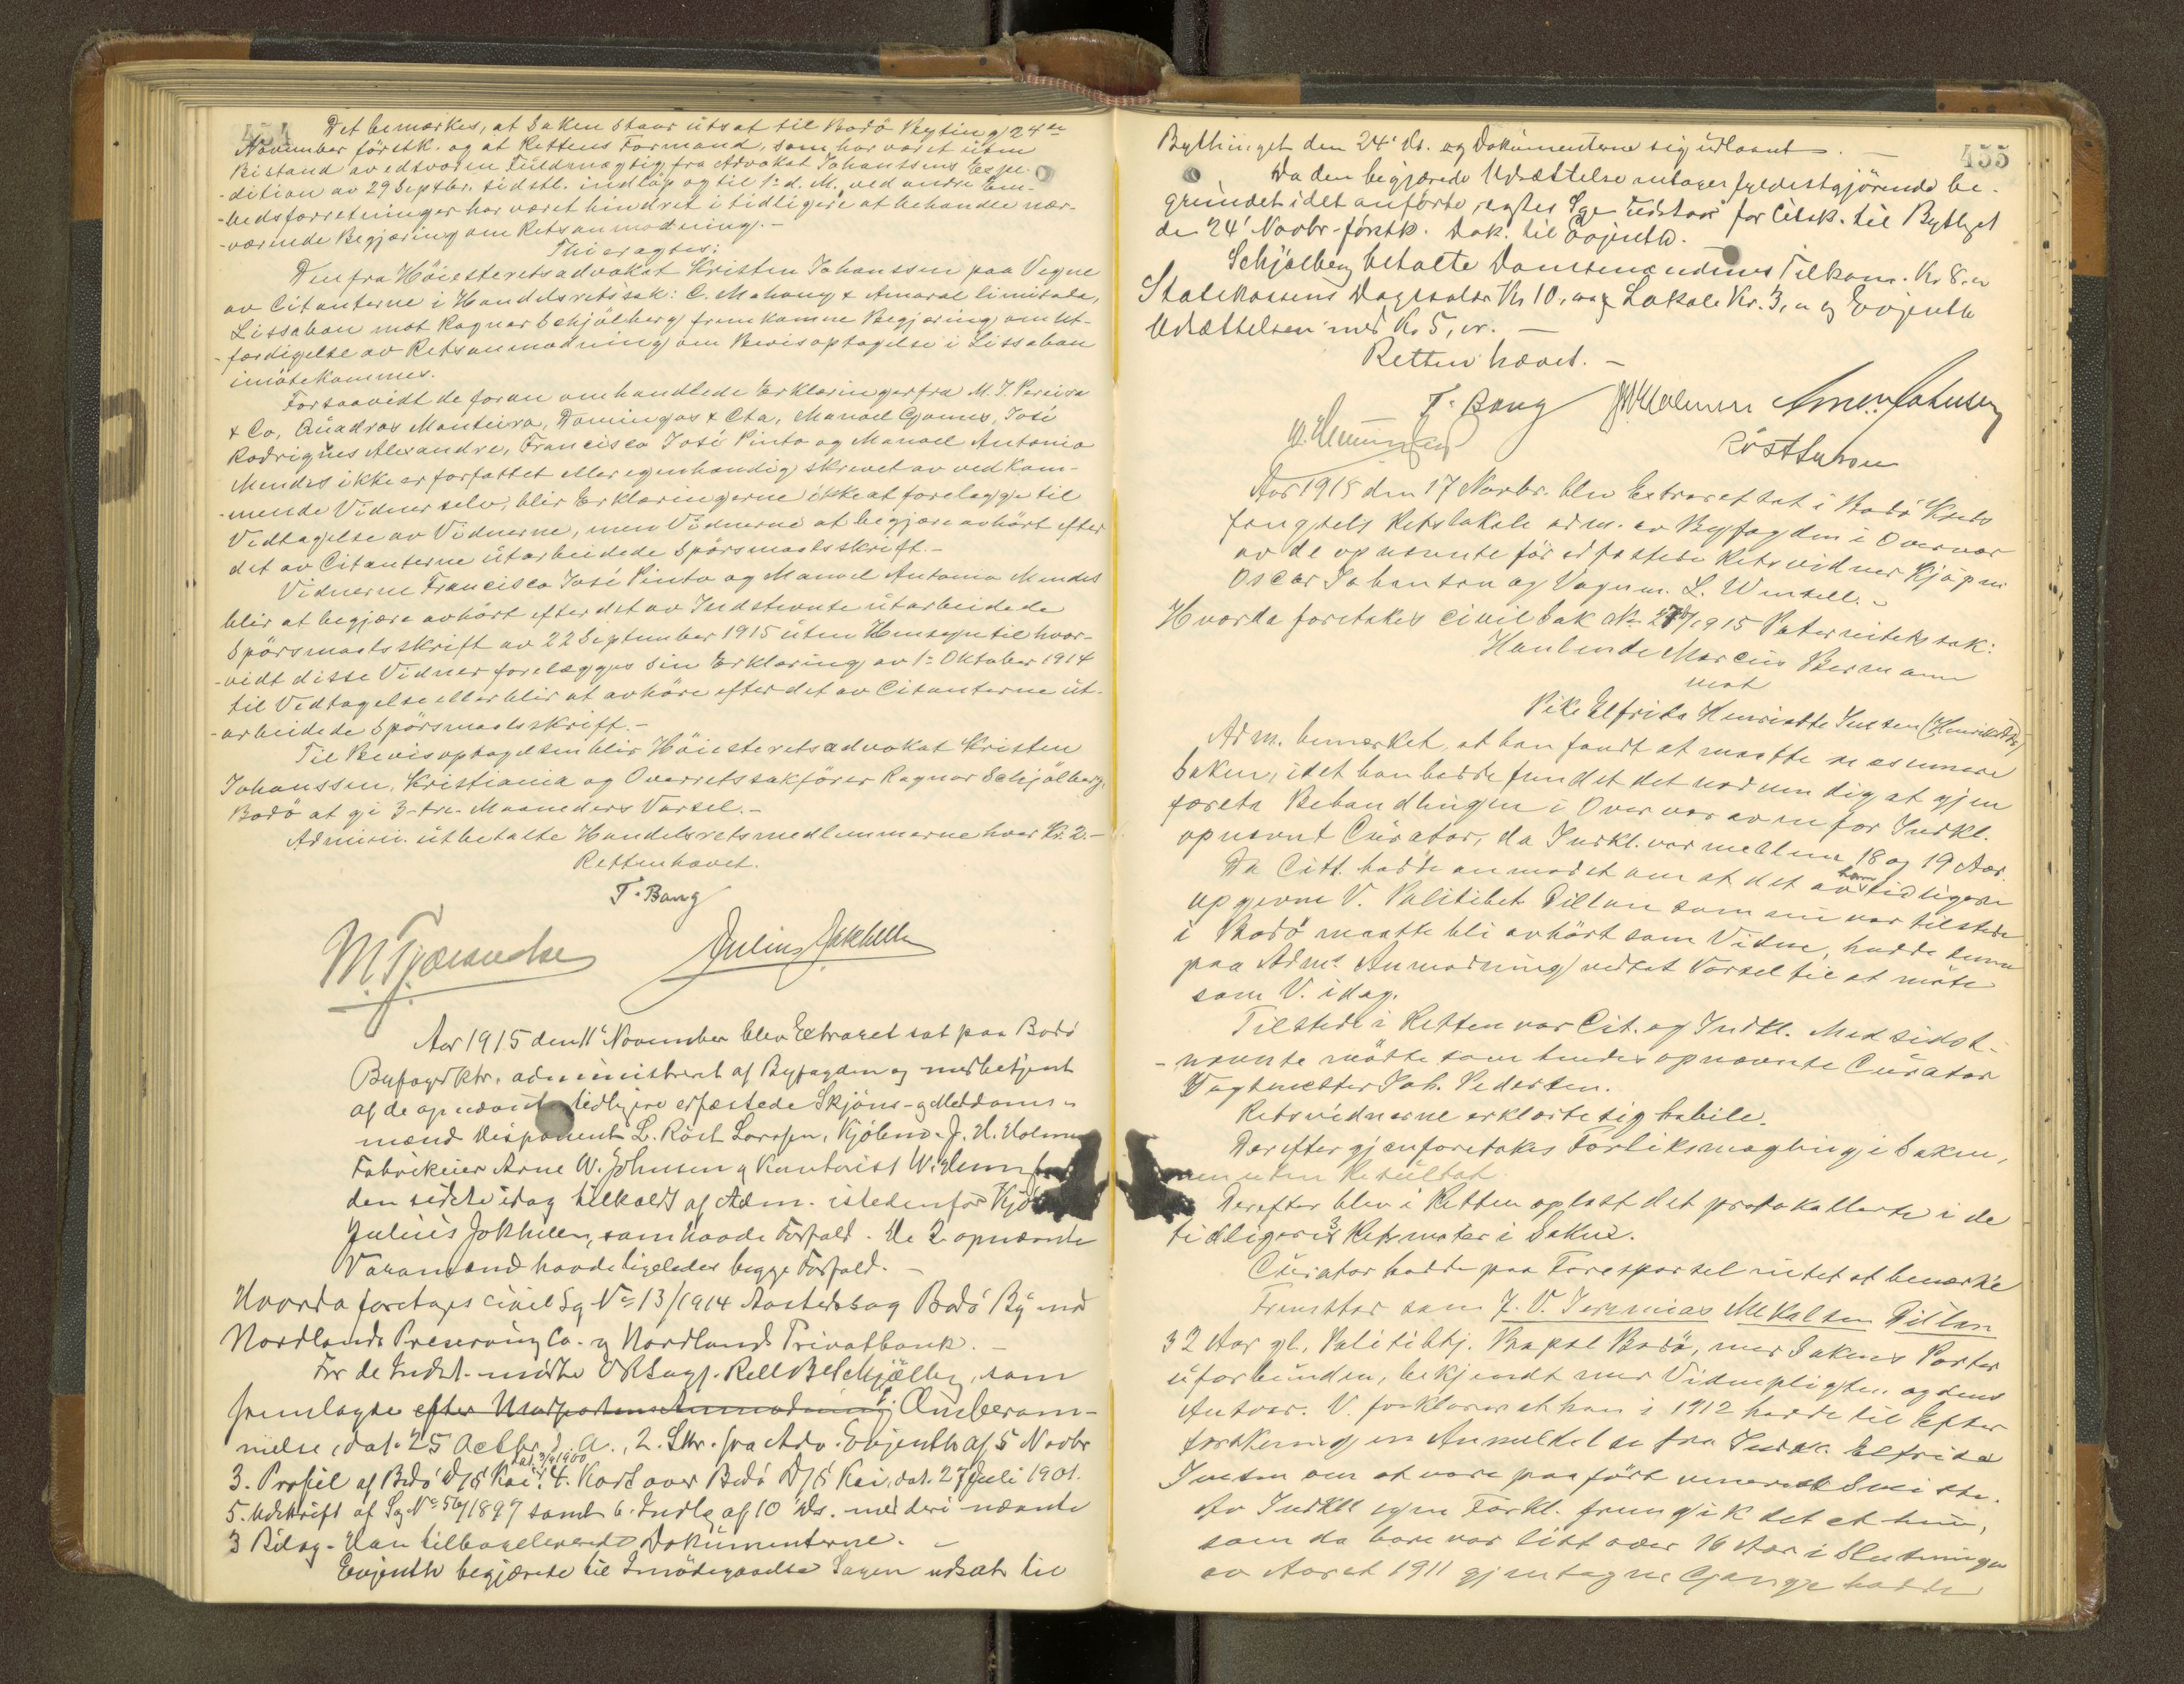 454
Det bemærkes, at Saken staar utsat til Bodø Byting 24de
November förstk. og at Rettens Formand, som har været uten
Bistand av edsvoren Fuldmægtig fra Advokat Johanssens Expe-
dition av 29 Septbr. sidstl. indløp og til 1ste d. M. ved andre Em-
bedsforretninger har været hindret i tidligere at behandle nær-
værende Begjæring om Retsanmodning. -
Thi eragtes:
Den fra Høiesteretsadvokat Kristen Johanssen paa Vegne
av Citanterne i Handelsretssak: C. Mahony & Amaral limitada,
Lissabon mot Ragnar Schjölberg fremkomne Begjæring om Ut-
færdigelse av Retsanmodning om Bevisoptagelse i Lissabon
imötekommes.
Forsaavidt de foran omhandlede Erklæringer fra M. J. Pereira
& Co, Quadros Monteira, Domingos & Cta, Manoel Gomes, José
Rodrigues Alexandre, Francisco José Pinto og Manoel Antonio
Mendes ikke er forfattet eller egenhændig skrevet av vedkom-
mende Vidner selv, blir Erklæringerne ikke at forelægge til
Vedtagelse av Vidnerne, men Vidnerne at begjære avhørt efter
det av Citanterne utarbeidede Spörsmaalsskrift. -
Vidnerne Francisco José Pinto og Manoel Antonio Mendes
blir at begjære avhört efter det av Indstevnte utarbeidede
Spörsmaalsskrift av 22 September 1915 uten Hensyn til hvor-
vidt disse Vidner forelægges sin Erklæring av 1ste Oktober 1914
til Vedtagelse eller blir at avhöre efter det av Citanterne ut-
arbeidede Spörsmaalsskrift. -
Til Bevisoptagelsen blir Høiesteretsadvokat Kristen
Johanssen, Kristiania og Overretssakförer Ragnar Schjölberg,
Bodö at gi 3-tre Maaneders Varsel. -
Admin. utbetalte Handelsretsmedlemmerne hver Kr. 2. -
Retten hævet.
T. Bang
M. Tjærandsen Julius Jakhelln
Aar 1915 den 11' November blev Extraret sat paa Bodø
Byfogdktr. administreret af Byfogden og medbetjent
af de opnævnte tidligere edfæstede Skjöns- og Meddoms-
mænd Disponent L. Röst Larssen, Kjöbm. J. H. Holmen
Fabrikeier Arne W. Johnsen og Kontorist W.
den sidste idag tilkaldt af Adm. istedenfor Kjöb
Julius Jakhelln, som havde Forfald. De 2 opnævnte
Varamænd havde ligeledes begge Forfald. -
Hvorda foretages civil Sg No 13/1914 Aastedssag Bodö By md
Nordlands Preserving Co. og Nordlands Privatbank. -
For de Indst. mödte ORSagf. Schjølberg, som
fremlagde efter Modpartens Anmodning 1. Omberam-
melse, dat. 25 Octbr. d. A., 2. Skr. fra Adv. Evjenth af 5 Novbr
3. Profil af Bodø D/S Kai, dat. 3/9 1900 4. Kart over Bodø D/S Kai, dat. 27 Juli 1901.
5. Udskrift af Sg No 56/1897 samt 6. Indlg af 10 ds. med deri nævnte
3 Bilag. Han tilbageleverede Dokumenterne. -
Evjenth begjærede til Imødegaaelse Sagen udsat til
455
Bythinget den 24' ds. og Dokumenterne sig udlaant. -
Da den begjærede Udsættelse antages fyldestgjörende be-
grundet i det anförte, eragtes Sgn udstaar for Citsk. til Bythget
den 24' Novbr. förstk. Dok. til Evjenth. -
Schjölberg betalte Domsmændenes Tilkom. Kr 8,
Statskassens Dagssalær Kr 10, og Lokale Kr. 3, og Evjenth
Udsættelsen med Kr 5, -
Retten hævet. -
T. Bang JHHolmen Arne W. Johnsen
Röst Larssen
Aar 1915 den 17 Novbr. blev Extraret sat i Bodö Kreds
fængsels Retslokale adm. av Byfogden i Overvær
av de opnævnte før edfæstede Retsvidner Kjöpm.
Oscar Johansen og Vognm. L. Wensell. -
Hvorda foretakes civil Sak No 27b/1915 Paternitetssak:
Handlende Marcus Bermann
mot
Pike Elfrida Henriette Ivesen (Henriksen)
Adm. bemerket at han fandt at maatte reassumere
Saken, idet han hadde fundet det nødvendig at gjen
foreta Behandlingen i Overvær av en for Indkl.
opnævnt Curator, da Indkl. var mellem 18 og 19 Aar.
Da Citt. hadde anmodet om at det av ham tidligere
opgivne V. Politibet. Dillan som nu var tilstede
i Bodö maatte bli avhört som Vidne, hadde denne
paa Adms Anmodning vedtat Varsel til at möte
som V. idag.
Tilstede i Retten var Cit. og Indkl. Med sidst-
nævnte mötte som hendes opnævnte Curator
Vagtmester Joh. Pedersen.
Retsvidnerne erklærte sig habile.
Derefter gjenforetokes Forliksmægling i Saken,
men uten Resultat.
Derefter blev i Retten oplæst det protokollerte i de
tidligere 3 Retsmøter i Saken.
Curator hadde paa Forespörsel intet at bemerke
Fremstod som 7. V. Jeremias Mikalsen Dillan
32 Aar gl. Politibtj. Bopæl Bodö, med Sakens Parter
uforbunden, bekjendt med Vidnepligten og dens
Ansvar. V. forklarer at han i 1912 hadde til Efter
forskning en Anmeldelse fra Indkl. Elfrida
Ivesen om at være paafört venerisk Smitte.
Av Indkl egen Forkl. fremgik det at hun,
som da bare var litt over 16 Aar i Slutningen
av Aaret 1911 gjentagne Gange hadde